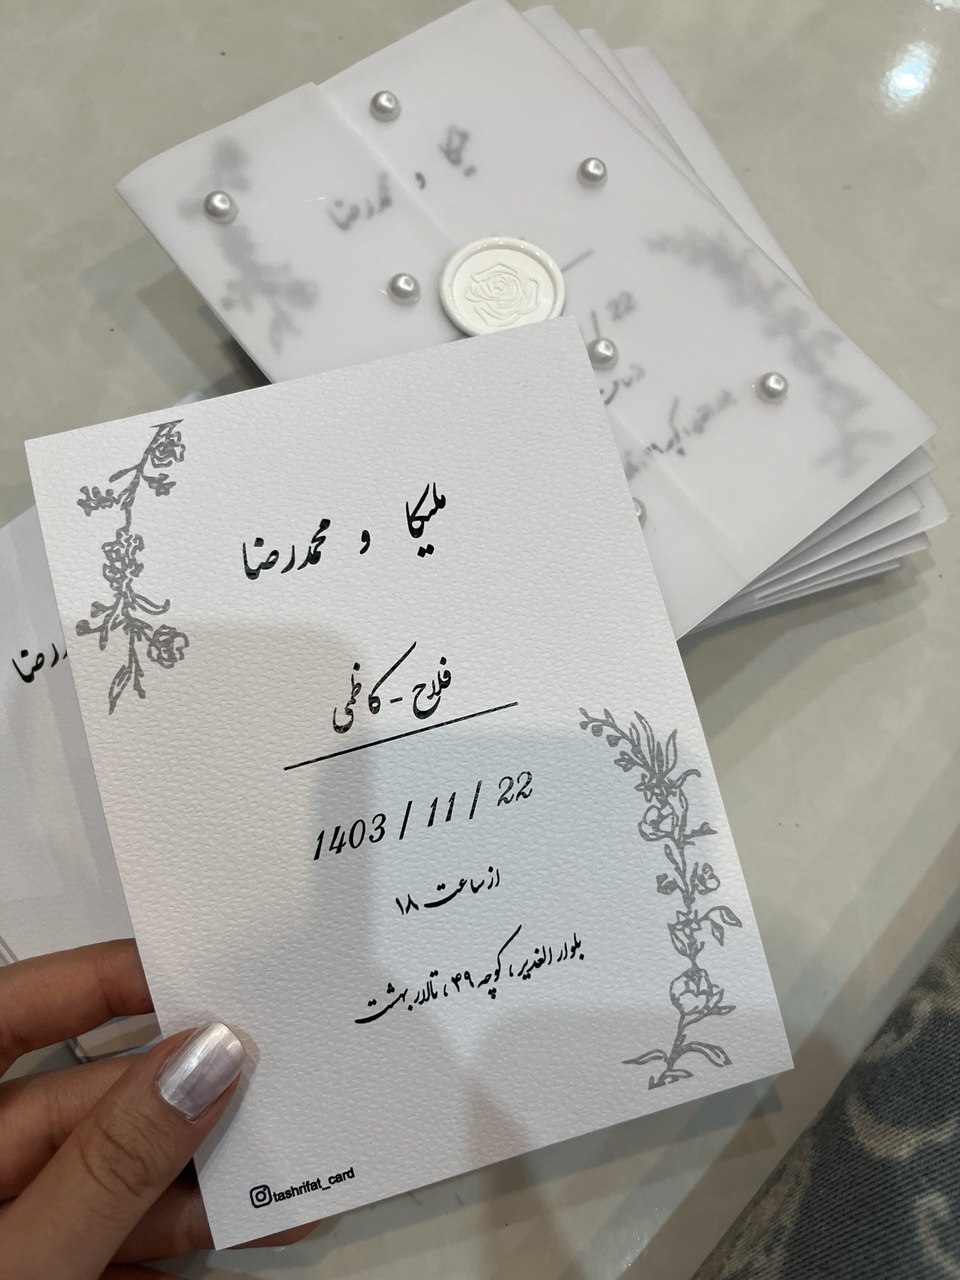 ملیکا و محمدرضا
22
ملیکا و محمدرضا
فلاح - کاظمی
1403 / 11 / 22
از ساعت ۱۸
بلوار الغدیر، کوچه ۴۹، تالار بهشت
tashrifat_card